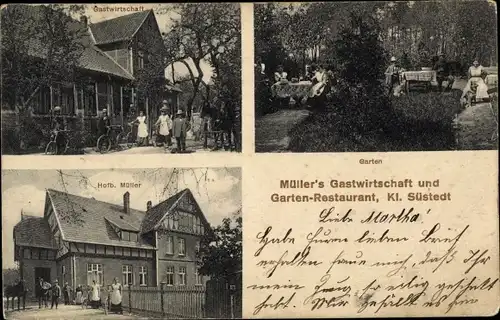 Gastwirtschaft
Garten
Hofb. Müller
Müller's Gastwirtschaft und
Garten-Restaurant, Kl. Süstedt
Liebe Martha!
Habe Euren lieben Brief
erhalten freue mich, das Ihr
mein so eilig geschaft
habt. Mir gefällt es hier